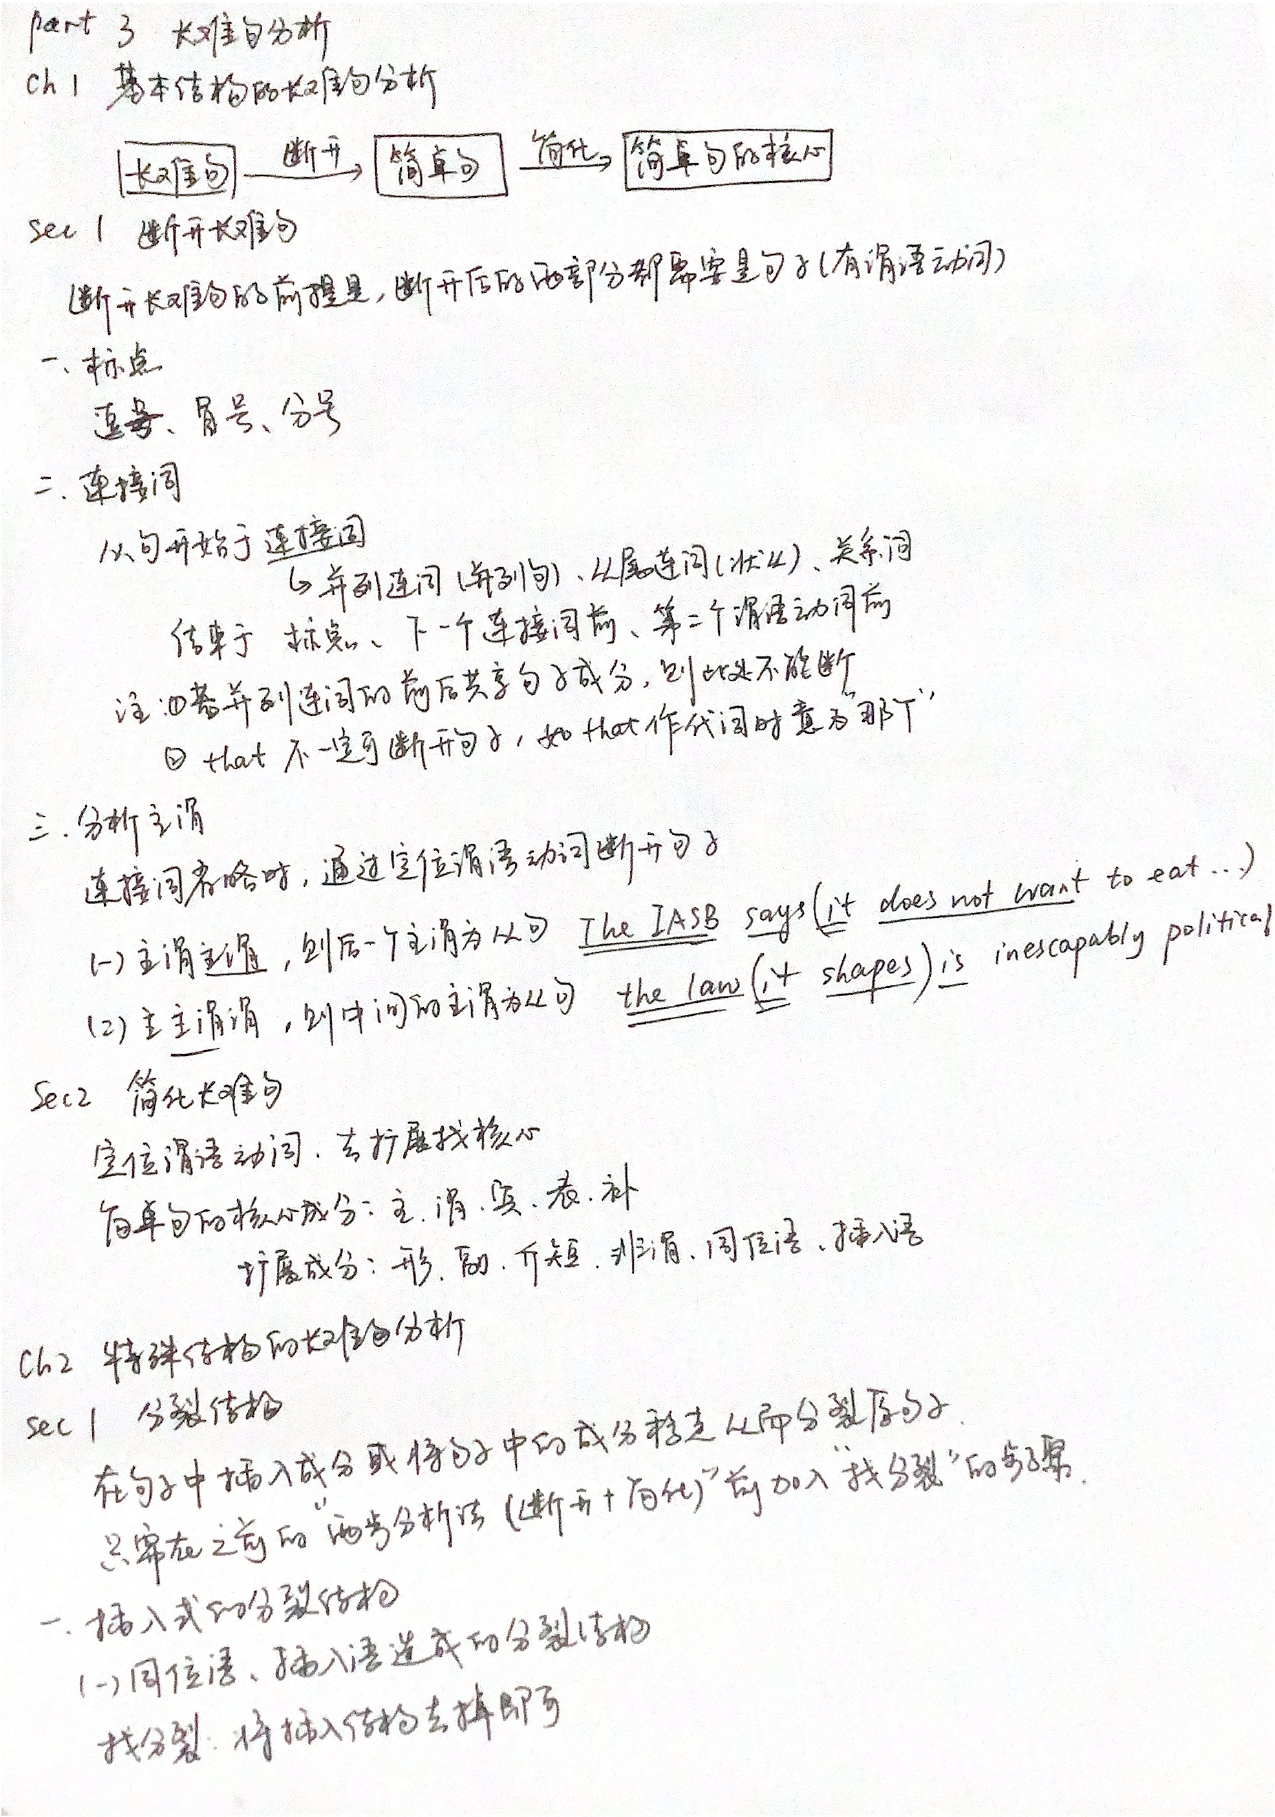 part 3 长难句分析
ch 1 基本结构的长难句分析
长难句 断开 简单句 简化 简单句的核心
sec 1 断开长难句
断开长难句的前提是，断开后的两部分都需要是句子(有谓语动词)
一、标点
逗号、冒号、分号
二、连接词
从句开始于连接词
↳ 并列连词(并列句)、从属连词(状从)、关系词
结束于 标点、下一个连接词前、第二个谓语动词前
注：①若并列连词的前后共享句子成分，则此处不能断
② that 不一定可断开句子，如 that 作代词时意为"那个"
三、分析主谓
连接词省略时，通过定位谓语动词断开句子
(一) 主谓主谓，则后一个主谓为从句 The IASB says (it does not want to eat ...)
(2) 主主谓谓，则中间的主谓为从句 the law (it shapes) is inescapably political
Sec2 简化长难句
定位谓语动词、去扩展找核心
简单句的核心成分：主、谓、宾、表、补
扩展成分：形、副、介短、非谓、同位语、插入语
Ch2 特殊结构的长难句分析
sec 1 分裂结构
在句子中插入成分或将句子中的成分移走从而分裂原句子.
只需在之前的"两步分析法(断开+简化)"前加入"找分裂"的步骤.
一、插入式的分裂结构
(一) 同位语、插入语造成的分裂结构
找分裂：将插入结构去掉即可